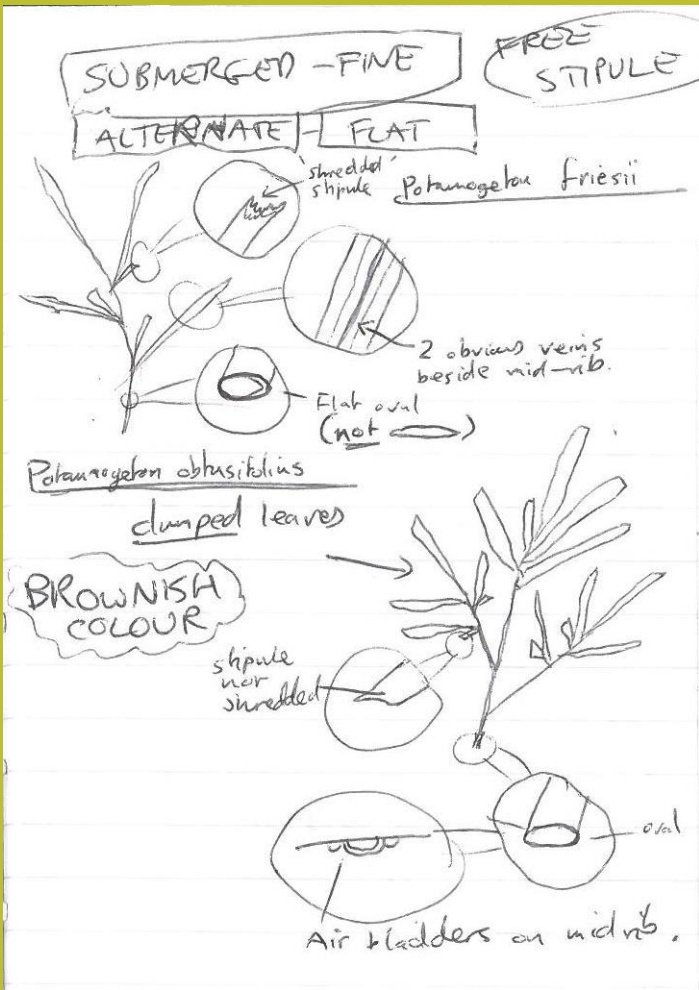 SUBMERGED - FINE
FREE
STIPULE
ALTERNATE - FLAT
'shredded'
stipule
Potamogeton friesii
2 obvious veins
beside mid-rib.
Flat oval
(not )
Potamogeton obtusifolius
clumped leaves
BROWNISH
COLOUR
stipule
not
shredded
oval
Air bladders on midrib.